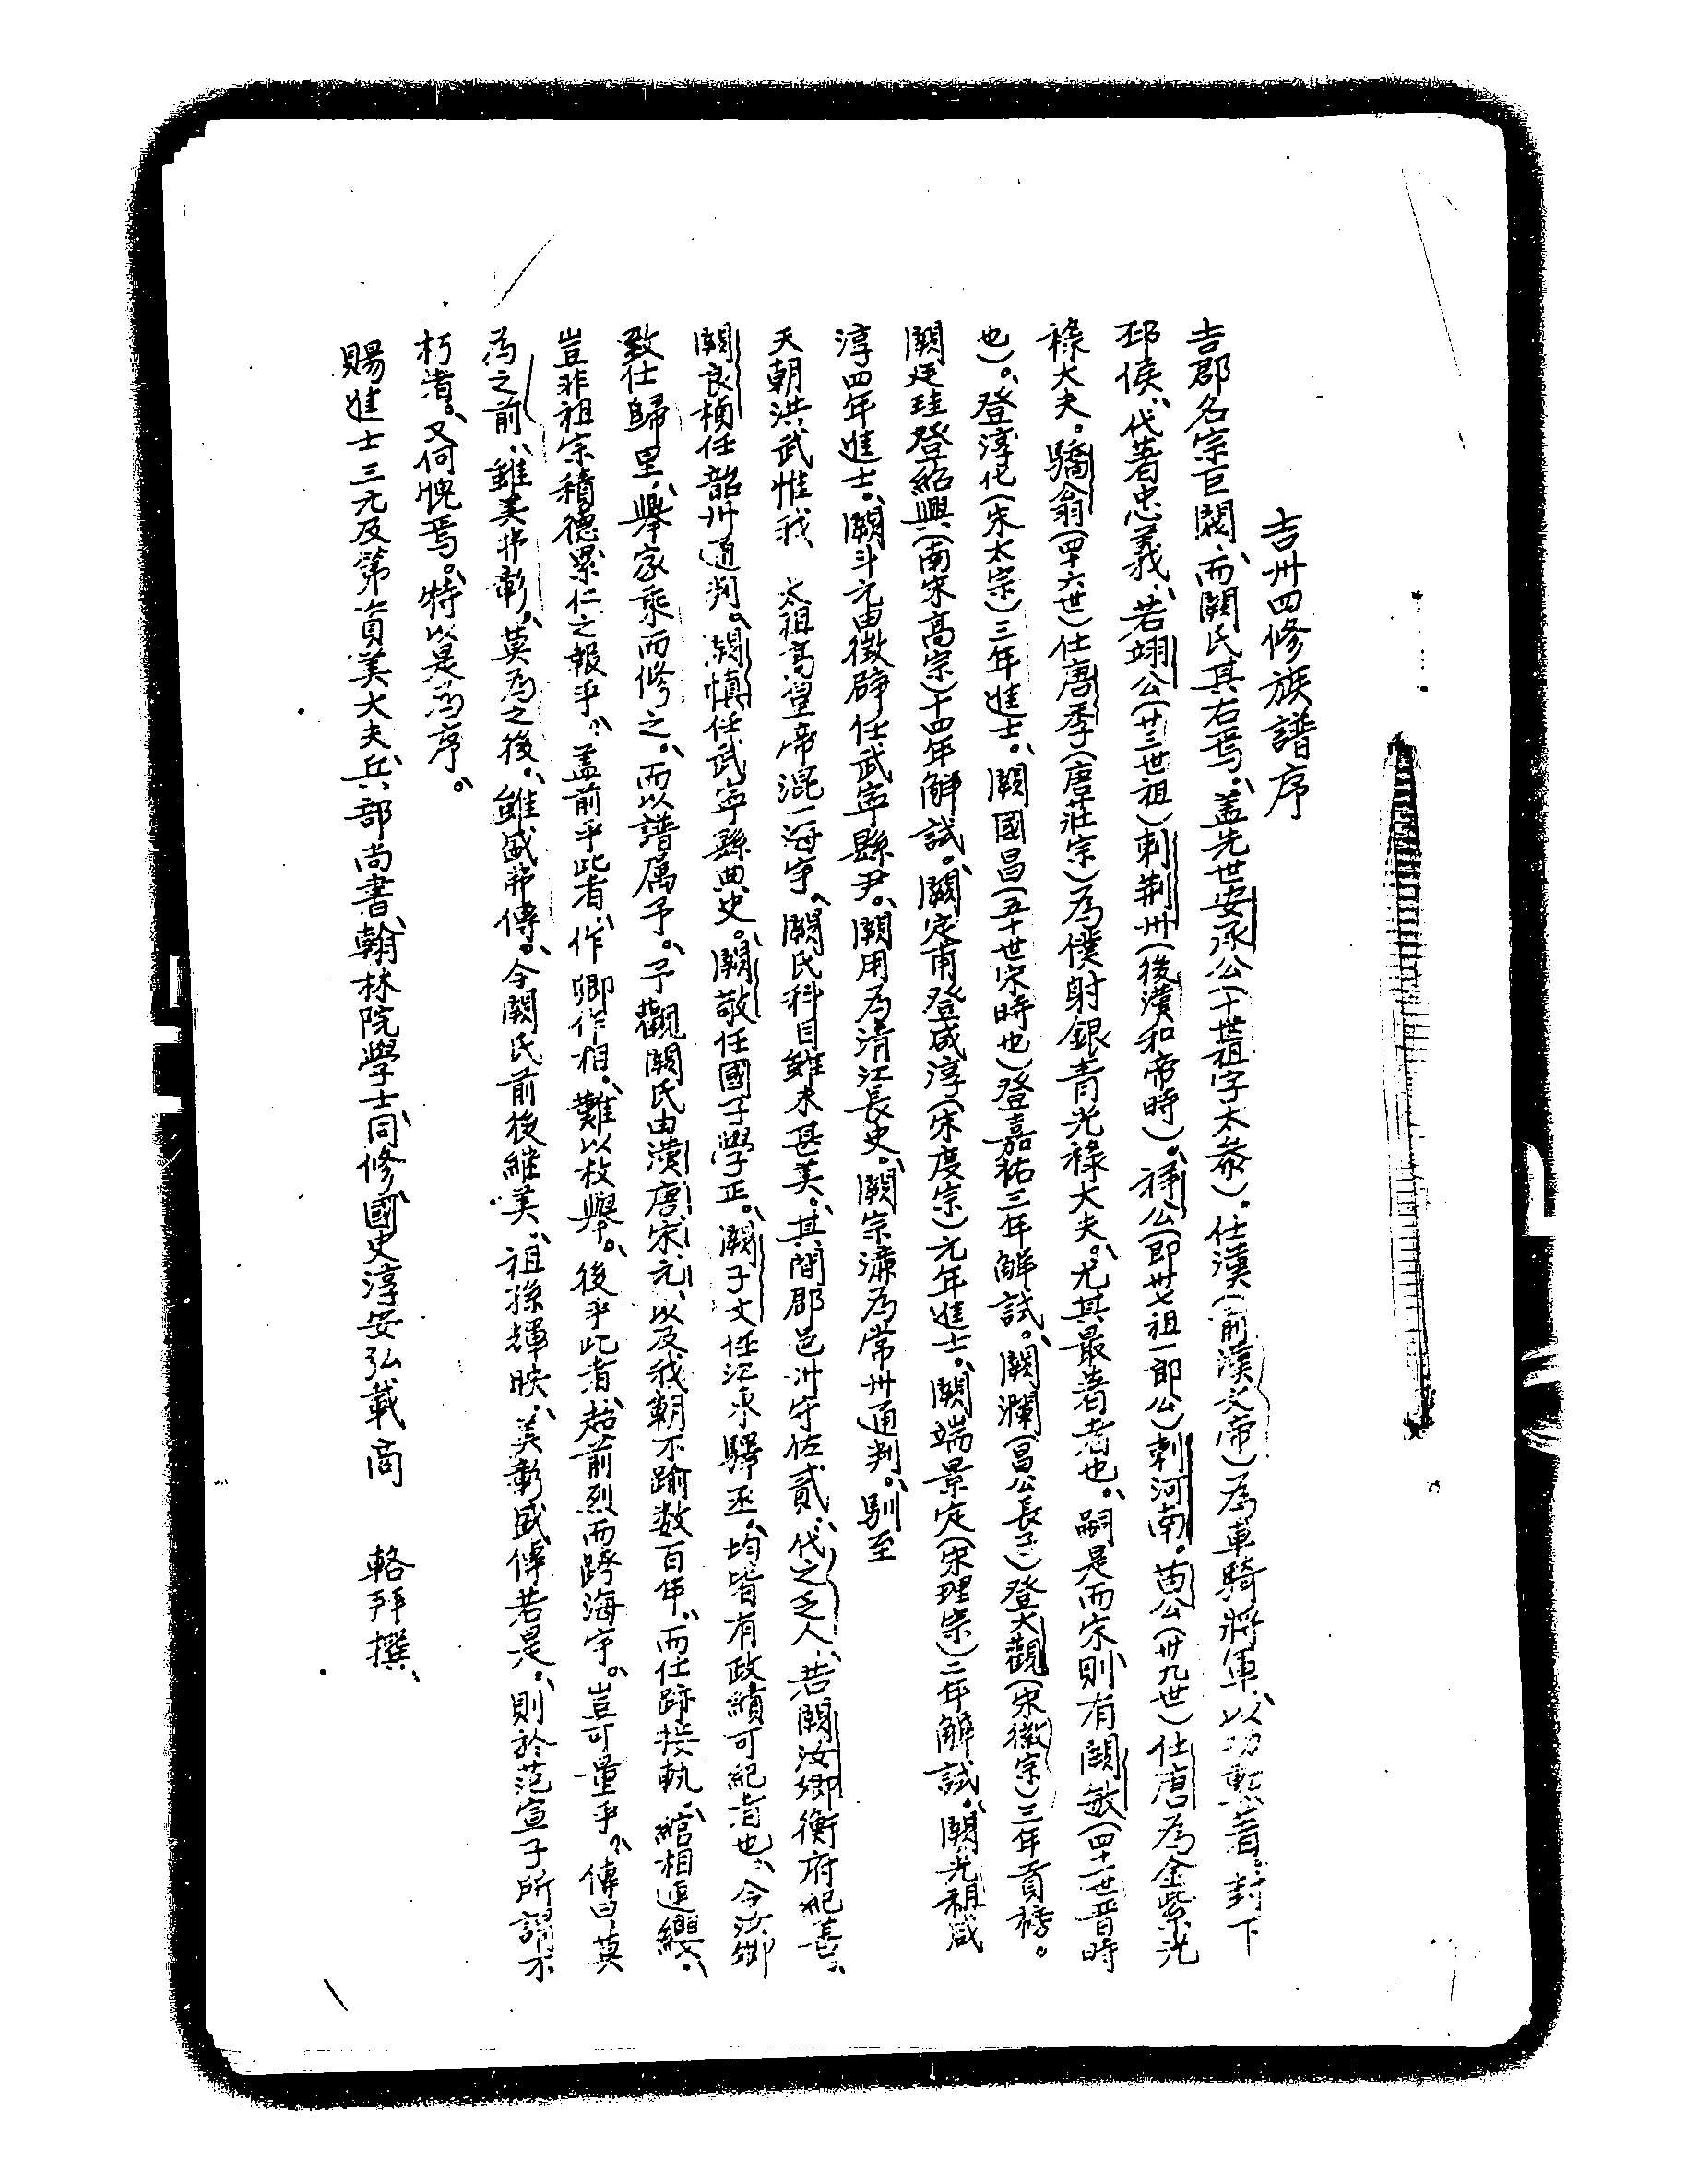 吉卅四修族譜序
吉郡名宗巨閥、而闕氏其右焉。蓋先世安丞公(十世祖字太泰)。仕漢(前漢文帝)為車騎將軍、以功勲著、封下
邳侯、代著忠義、若翊公(廿三世祖)刺荆卅(後漢和帝時)。公(即卅七祖一郎公)刺河南。苗公(卅九世)仕唐為金紫光
祿大夫。驕翁(四十六世)仕唐季(唐莊宗)為僕射銀青光祿大夫。尤其最著者也。嗣是而宋則有闕敏(四十一世晋時
也)。登淳化(宋太宗)三年進士。闕國昌(五十世宋時也)登嘉祐三年解試。闕瀾(昌公長子)登大觀(宋徽宗)三年貢榜。
闕廷珪登紹興(南宋高宗)十四年解試。闕定甫登咸淳(宋度宗)元年進士。闕端景定(宋理宗)二年解試。闕光祖咸
淳四年進士。闕斗元由徵辟任武寧縣尹。闕用為清江長史。闕宗濂為常卅通判。馴至
天朝洪武惟我 太祖高皇帝混一海宇、闕氏科目雖未甚美、其間郡邑卅守佐貳、代之乏人、若闕汝卿衡府紀善、
闕良楨任韶卅通判。闕慎任武寧縣典史。闕敬任國子學正。闕子文任江東驛丞、均皆有政績可紀者也、今汝卿
致仕歸里、舉家乘而修之、而以譜属予。予觀闕氏由漢唐宋元、以及我朝不踰数百年、而仕跡接軌、綰相連纓、
豈非祖宗積德累仁之報乎、蓋前乎此者、作卿作相、難以枚舉。後乎此者、超前烈而跨海宇。豈可量乎、傳曰莫
為之前、雖美弗彰、莫為之後、雖盛弗傳。今闕氏前後継美、祖孫輝映、美彰盛傳若是、則於范宣子所謂不
朽者、又何愧焉。特以是為序。
賜進士三元及第資美大夫兵部尚書、翰林院學士、同修國史淳安弘載商 輅拜撰、